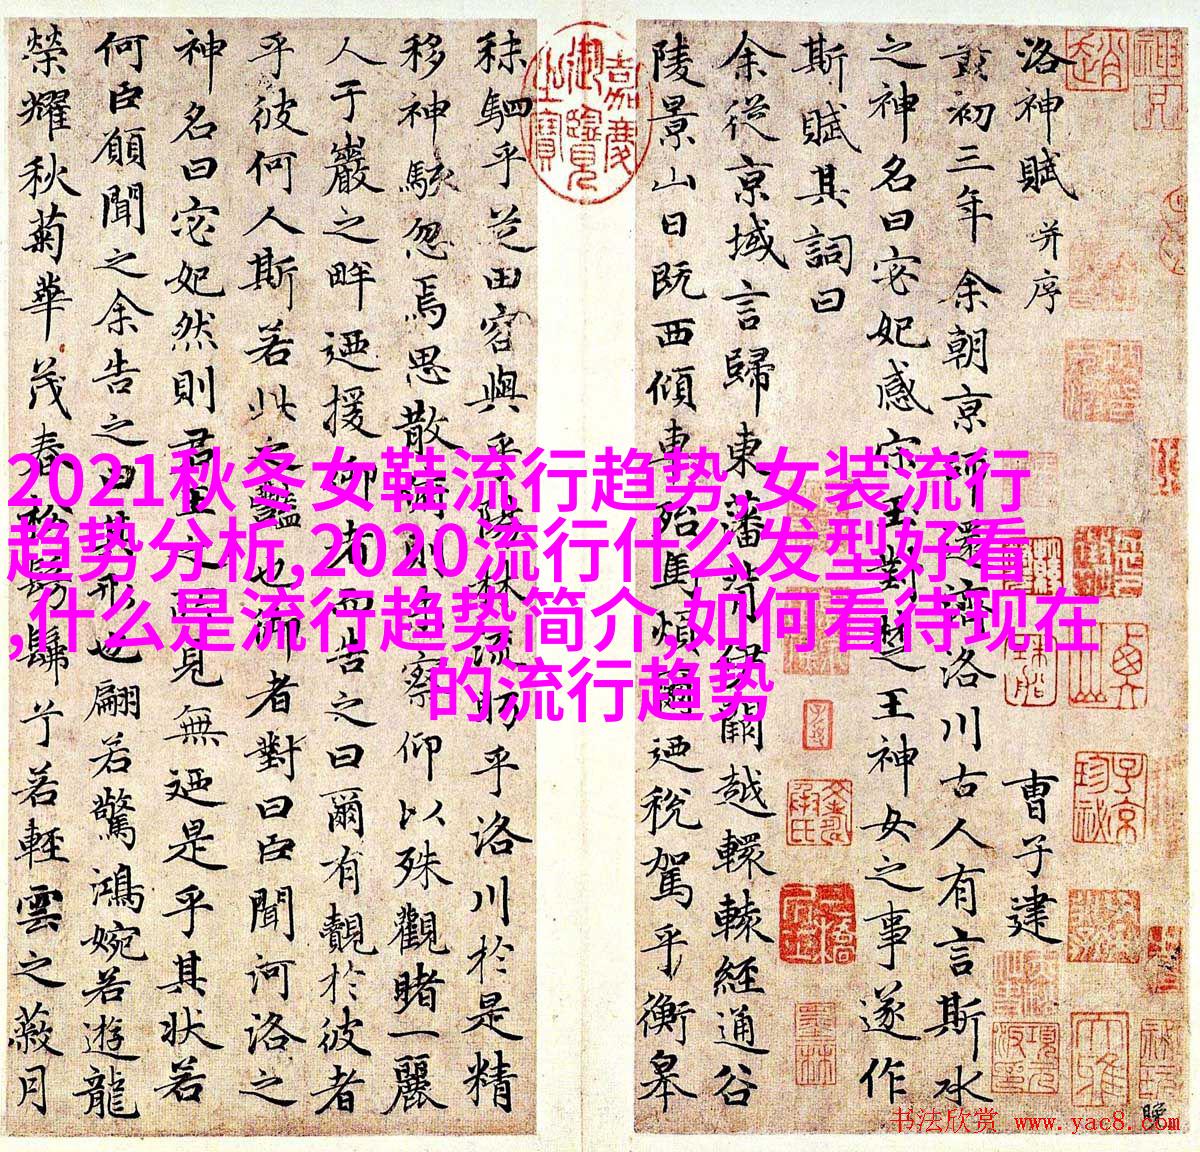 洛神賦 并序 曹子建
黃初三年余朝京師還濟洛川古人有言斯水
之神名曰宓妃感宋玉對楚王神女之事遂作
斯賦其詞曰
余從京域言歸東藩背伊闕越轘轅經通谷
陵景山日既西傾車殆馬煩爾迺稅駕乎衡皋
嘉慶御覽之寶
秣駟乎芝田容與乎陽林流眄乎洛川於是精
移神駭忽焉思散俯則未察仰以殊觀睹一麗
人于巖之畔迺援御者而告之曰爾有覿於彼者
乎彼何人斯若此之豔也御者對曰臣聞河洛之
神名曰宓妃然則君王之所見無迺是乎其狀若
何臣願聞之余告之曰其形也翩若驚鴻婉若遊龍
榮耀秋菊華茂春松髣髴兮若輕雲之蔽月
2021秋冬女鞋流行趋势,女装流行
趋势分析,2020流行什么发型好看
,什么是流行趋势简介,如何看待现在
的流行趋势
书法欣赏 www.yac8.com